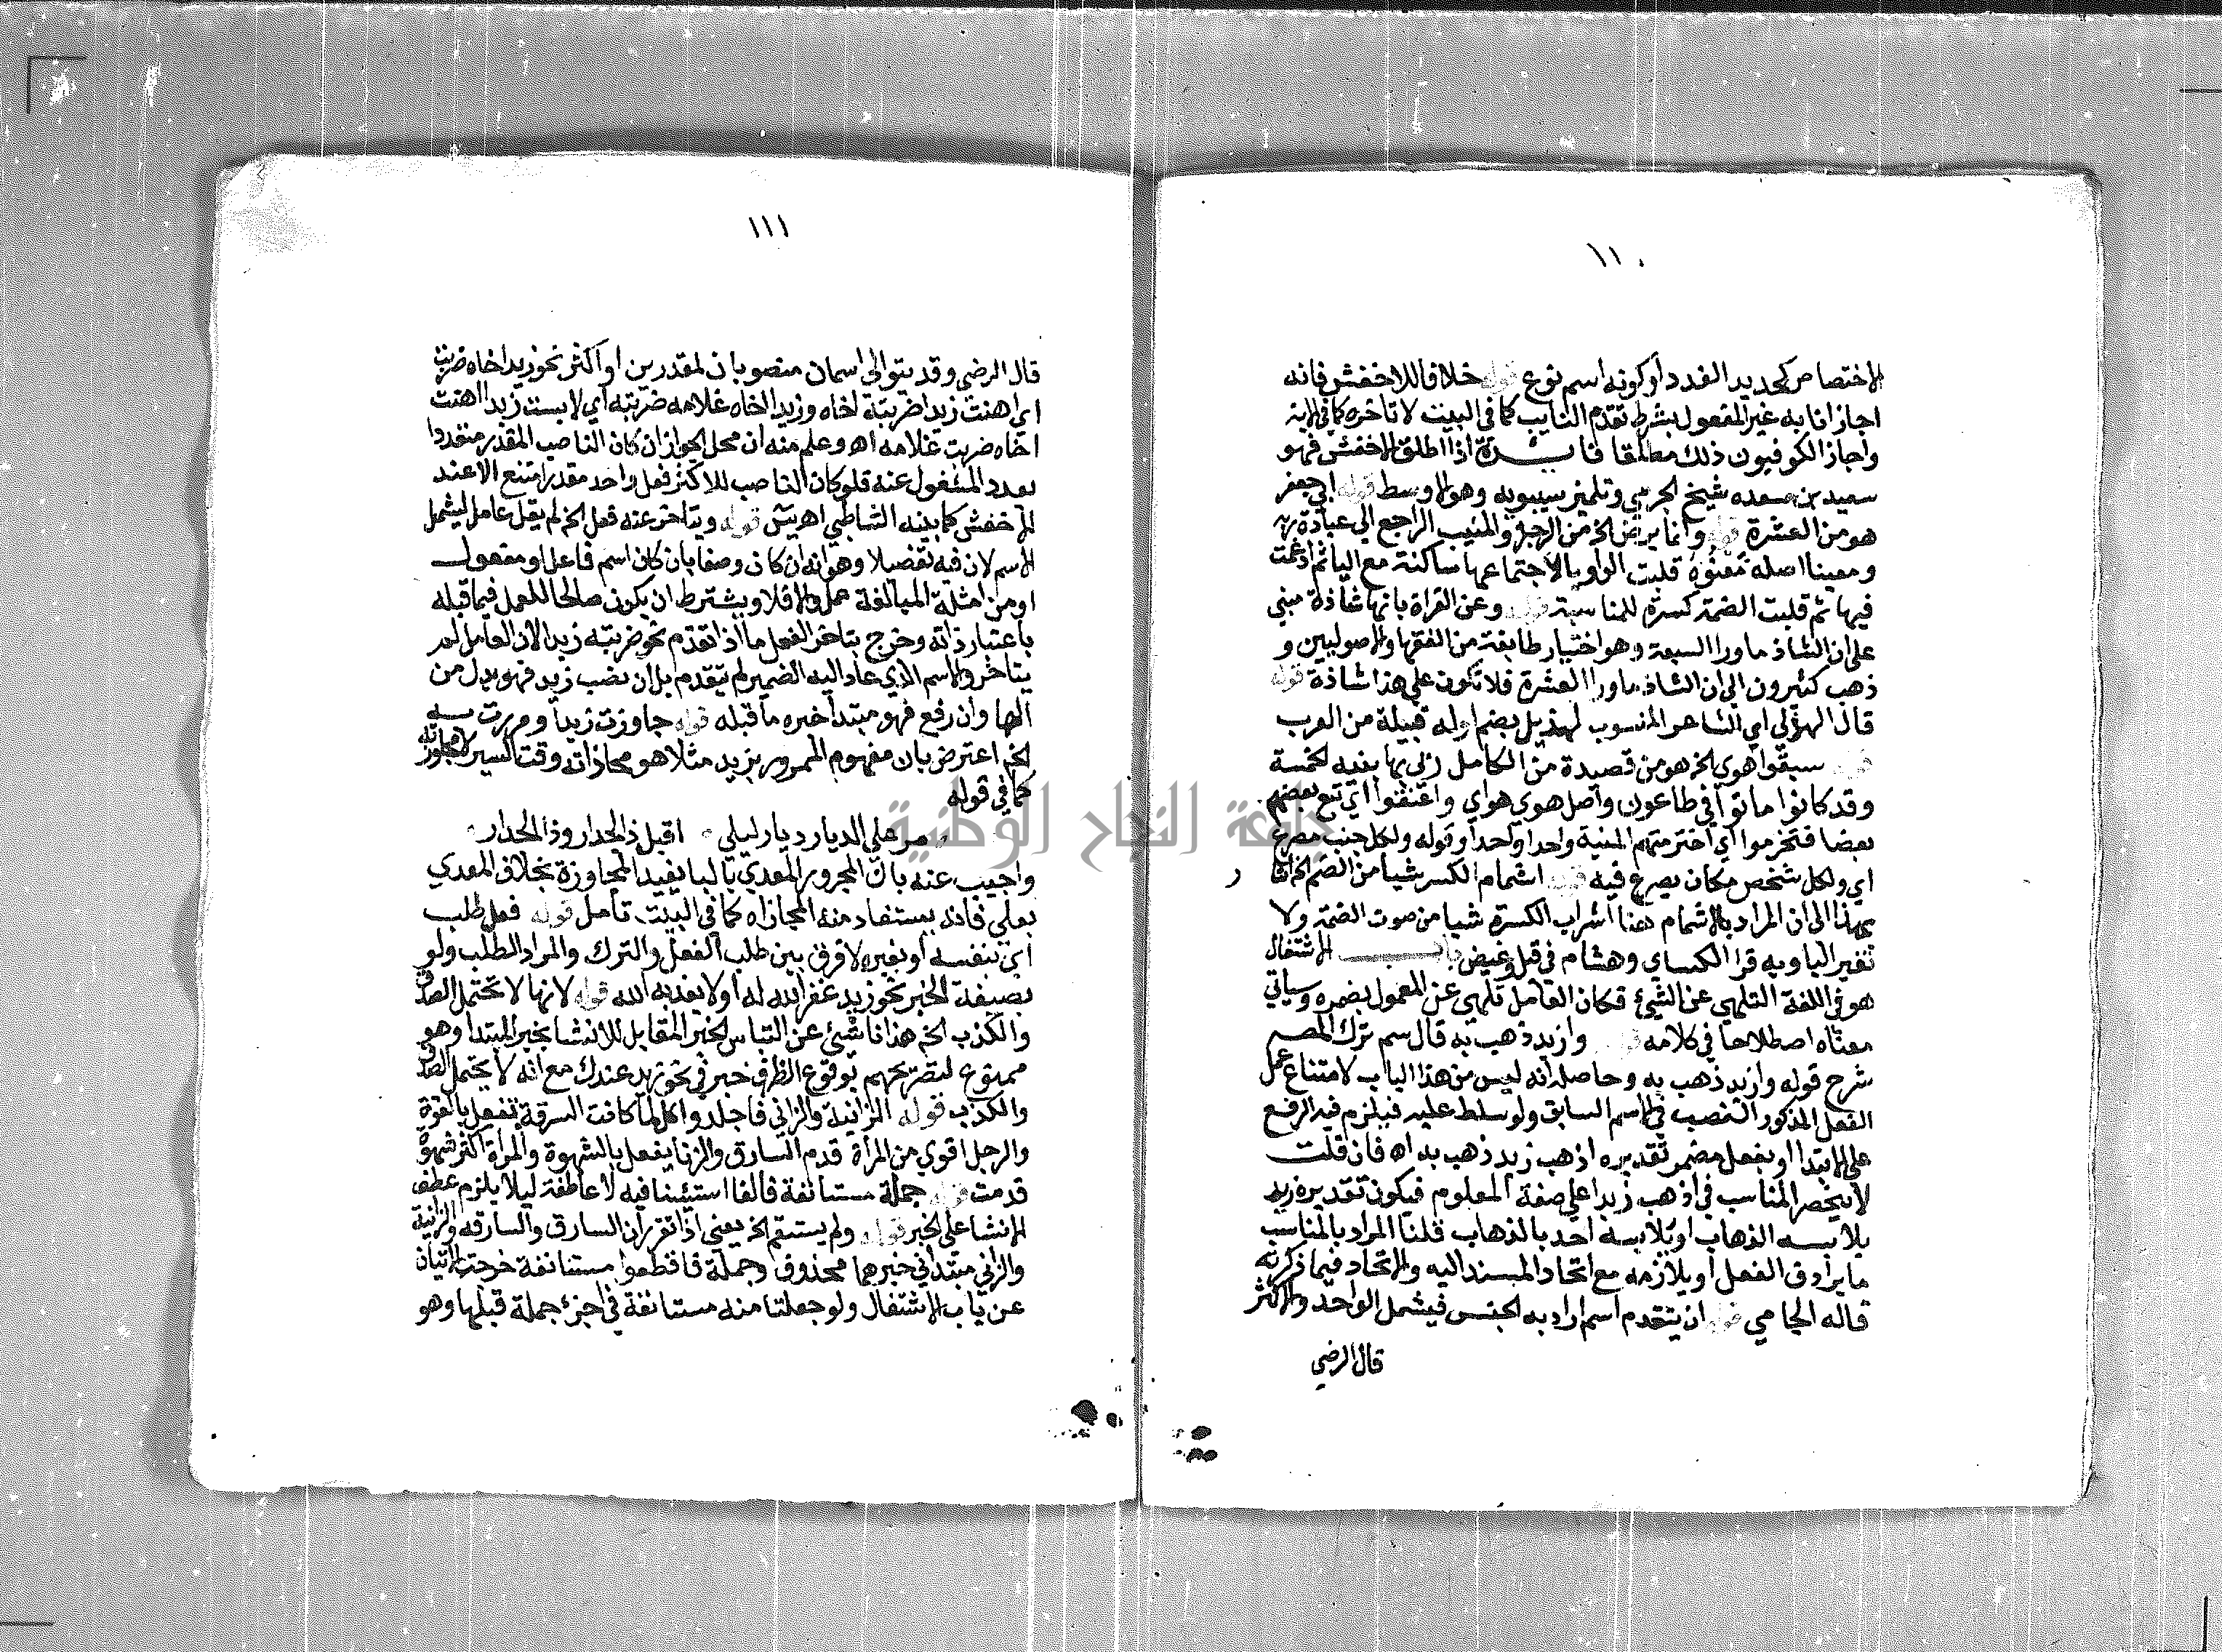 ١١٠
الاختصاص كتحديد العدد أو كونه اسم نوع قوله خلافا للاخفش فانه
اجاز انابه غير المفعول بشرط تقدم النايب كما في البيت لا تاخره كما في الاية
واجاز الكوفيون ذلك مطلقا فايدة اذا اطلق الاخفش فهو
سعيد بن مسعده شيخ الجرمي وتلميذ سيبويه وهو الاوسط قوله ابي جعفر
هو من العشرة قوله وانما يرضي الخ من الرجز والمنيب الراجع الي عبادة ربه
ومعينا اصله معنوي قلبت الواو يا لاجتماعها ساكنة مع اليا ثم ادغمت
فيها ثم قلبت الضمة كسرة للمناسبة قوله وعن القراة بانها شاذة مبني
علي ان الشاذ ماورا السبعة وهو اختيار طايفة من الفقها والاصوليين و
ذهب كثيرون الي ان الشاذ ماورا العشرة فلا تكون علي هذا شاذة قوله
قال الهذلي اي الشاعر المنسوب لهذيل بضم اوله قبيلة من العرب
قوله سبقوا هوي الخ هو من قصيدة من الكامل رثي بها بنيه الخمسة
وقد كانوا ماتوا في طاعون واصل هوي هواي واعنقوا اي تبع بعضهم
بعضا فتخرموا اي اخترمتهم المنية واحدا واحدا وقوله ولكل جنب مصرع
اي ولكل شخص مكان يصرع فيه قوله اشمام الكسر شيا من الضم الخ اشار
بهذا الي ان المراد بالاشمام هنا اشراب الكسرة شيا من صوت الضمة ولا
تغير اليا وبه قرا الكساي وهشام في قيل وغيض باب الاشتغال
هو في اللغة التلهي عن الشيء فكان العامل تلهي عن المعمول بضمره وسياتي
معناه اصطلاحا في كلامه قوله وازيد ذهب به قال سم ترك المص
شرح قوله وازيد ذهب به وحاصله انه ليس من هذا الباب لامتناع عمل
الفعل المذكور النصب في الاسم السابق ولو سلط عليه فيلزم فيه الرفع
علي الابتدا او بفعل مضمر تقديره اذهب زيد ذهب به اه فان قلت
لا ينحصر المناسب في اذهب زيدا علي صفة المعلوم فيكون تقديره زيد
يلابسه الذهاب او يلابسه احد بالذهاب قلنا المراد بالمناسب
ما يرادف الفعل او يلازمه مع اتحاد المسند اليه والاتحاد فيما ذكرته
قاله الجامي قوله ان يتقدم اسم اراد به الجنس فيشمل الواحد والاكثر
قال الرضي
١١١
قال الرضي وقد يتوالي اسمان منصوبان لمقدرين او اكثر نحو زيدا اخاه ضربته
اي اهنت زيدا ضربت اخاه وزيدا اخاه غلامه ضربته اي لابست زيدا اهنت
اخاه ضربت غلامه اه وعلم منه ان محل الجواز ان كان الناصب المقدر متعددا
بعدد المشغول عنه فلو كان الناصب للاكثر فعل واحد مقدر امتنع الا عند
الاخفش كما بينه الشاطبي اه يس قوله ويتاخر عنه فعل الخ لم يقل عامل ليشمل
الاسم لان فيه تفصيلا وهو انه ان كان وصفا بان كان اسم فاعل او مفعول
او من امثلة المبالغة عمل والا فلا ويشترط ان يكون صالحا للعمل فيما قبله
باعتبار ذاته وخرج بتاخر الفعل ما اذا تقدم نحو ضربته زيدا لان العامل لم
يتاخر والاسم الذي عاد اليه الضمير لم يتقدم بل ان نصب زيد فهو بدل من
الها وان رفع فهو مبتدا خبره ما قبله قوله جاوزت زيدا ومررت به
الخ اعترض بان مفهوم المرور بزيد مثلا هو محاذاته وقت السير لا مجاوزته
كما في قوله
مر علي الديار ديار ليلي اقبل ذا الجدار وذا الجدار
واجيب عنه بان المجرور المعدي بالبا يفيد المجاوزة بخلاف المعدي
بعلي فانه يستفاد منه المحاذاه كما في البيت تامل قوله فعل طلب
اي بنفسه او بغيره لا فرق بين طلب الفعل والترك والمراد الطلب ولو
بصيغة الخبر نحو زيد غفر الله له او لا يعذبه الله قوله لانها لا تحتمل الصدق
والكذب الخ هذا ناشئ عن التباس الخبر المقابل للانشا بخبر المبتدا وهو
ممنوع لتصريحهم بوقوع الظرف خبر في نحو زيد عندك مع انه لا يحتمل الصدق
والكذب قوله الزانية والزاني فاجلدوا كل لما كانت السرقة تفعل بالقوة
والرجل اقوي من المراة قدم السارق والزنا يفعل بالشهوة والمراة اكثر شهوة
قدمت قوله جملة مستانفة فالفا استئنافيه لا عاطفة ليلا يلزم عطف
الانشا علي الخبر قوله ولم يستقم الخ يعني اذا تقرر ان السارق والسارقه والزانية
والزاني مبتدا في خبرهما محذوف وجملة فاقطعوا مستانفة خرجت الايتان
عن باب الاشتغال ولو جعلتا منه مستانفة في اجزء جملة قبلها وهو
جامعة النجاح الوطنية